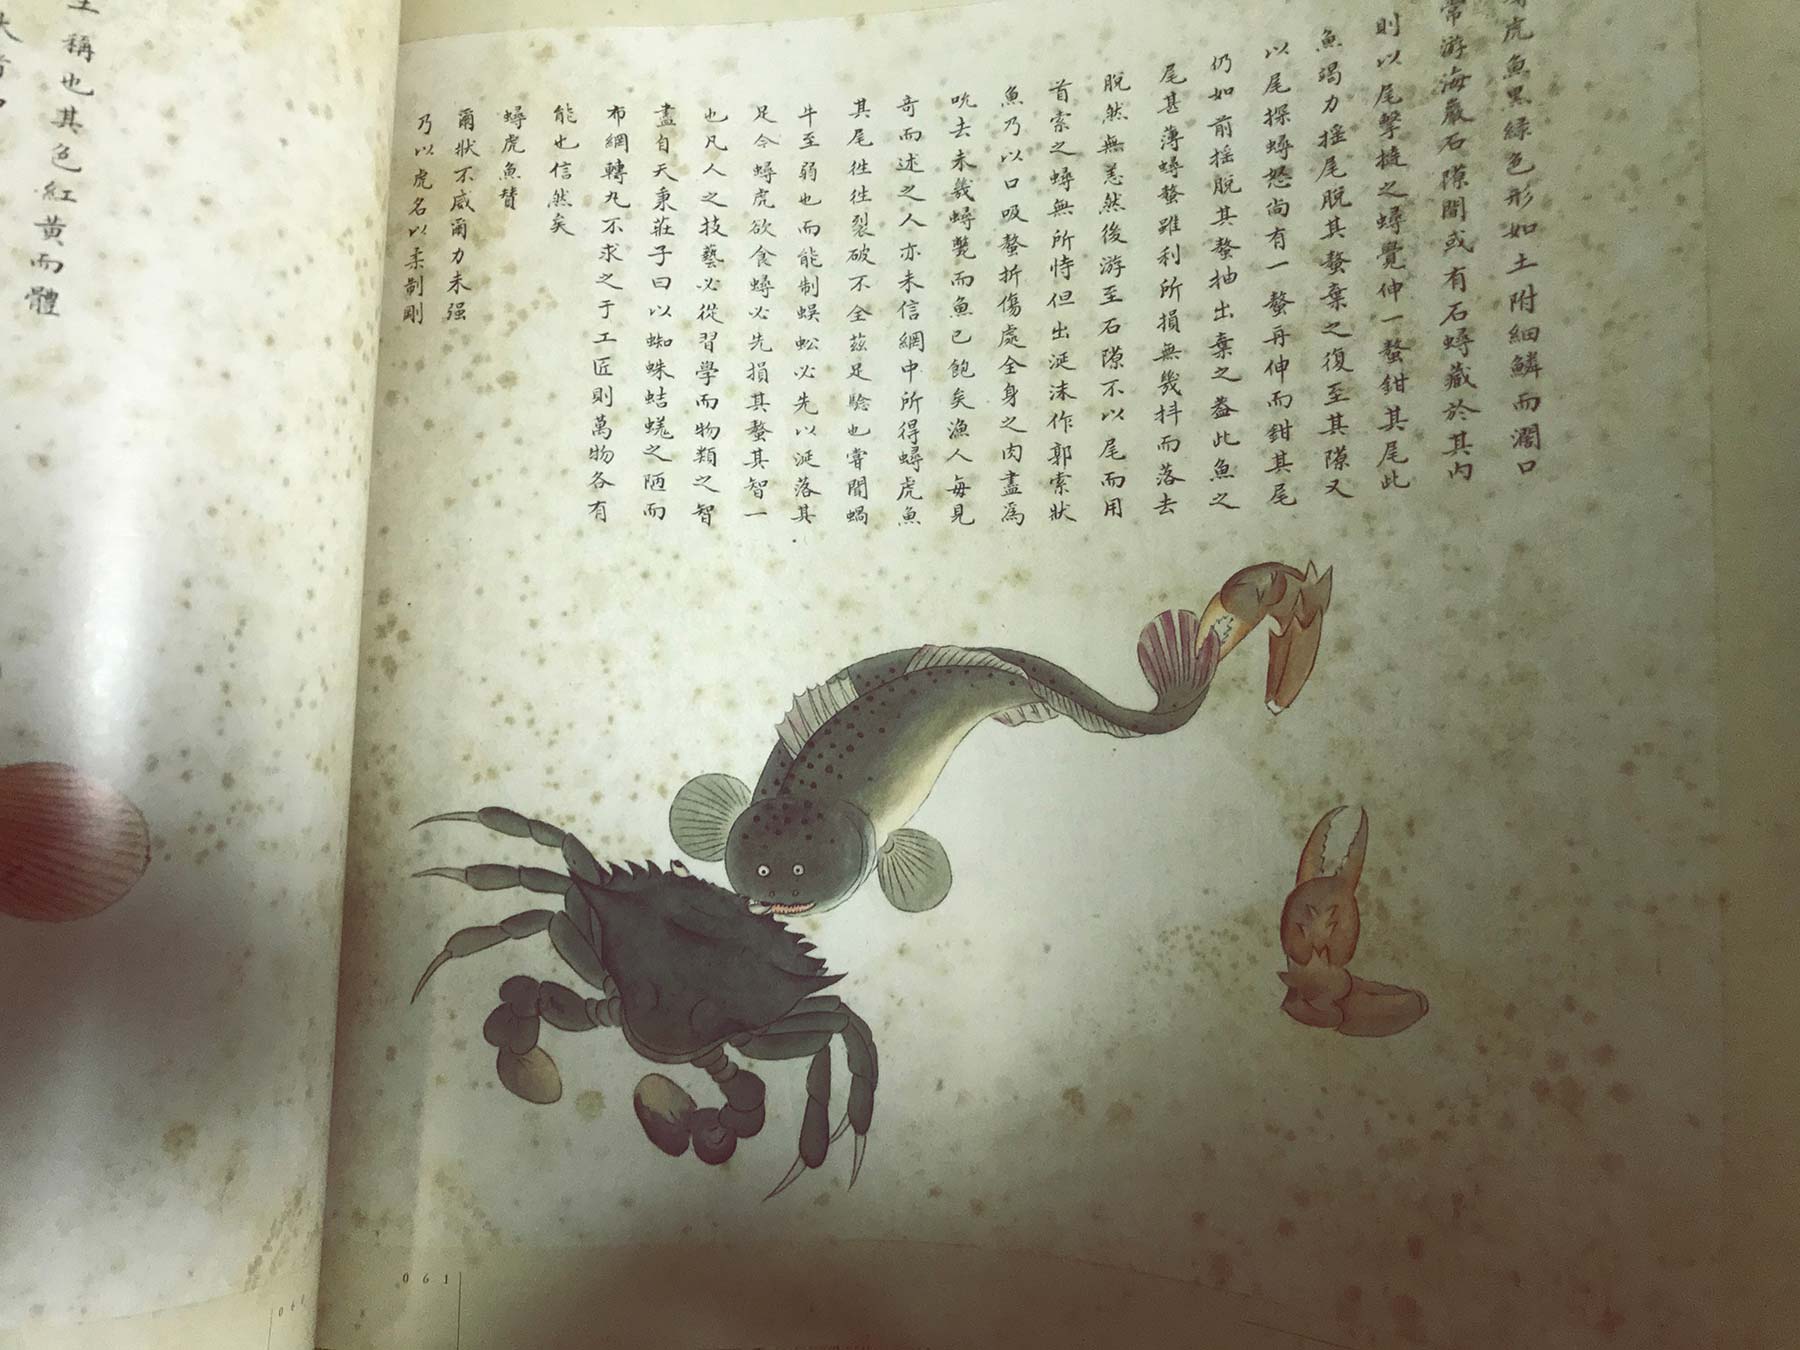 虎魚黑綠色形如土附細鱗而濶口
常游海巖石隙間或有石蟳藏於其內
則以尾擊撓之蟳覺伸一螯鉗其尾此
魚竭力摇尾脫其螯棄之復至其隙又
以尾探蟳怒尚有一螯再伸而鉗其尾
仍如前摇脫其螯抽出棄之葢此魚之
尾甚薄蟳螯雖利所損無幾抖而落去
脫然無恙然後游至石隙不以尾而用
首索之蟳無所恃但出涎沫作郭索狀
魚乃以口吸螯折傷處全身之肉盡為
吮去未幾蟳斃而魚已飽矣漁人每見
奇而述之人亦未信網中所得蟳虎魚
其尾徃徃裂破不全茲足驗也甞聞蝸
牛至弱也而能制蜈蚣必先以涎落其
足今蟳虎欲食蟳必先損其螯其智一
也凡人之技藝必從習學而物類之智
盡自天秉莊子曰以蜘蛛蛣蜣之陋而
布網轉丸不求之于工匠則萬物各有
能也信然矣
蟳虎魚贊
爾狀不威爾力未强
乃以虎名以柔制剛
061
稱也其色紅黃而體